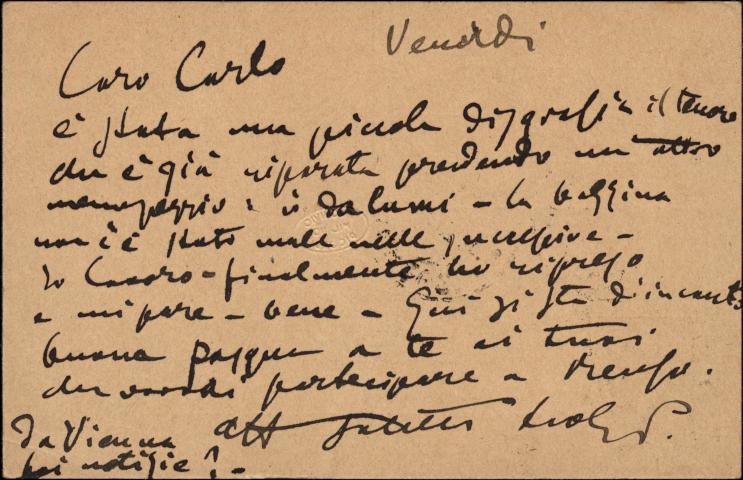 Venerdi
Caro Carlo
è stata una piccola disgrazia il tenore
che è già riparata prendendo un altro
menopeggio: è dalumi - la beggina
non c'è stato male nelle successive -
Io lavoro - finalmente ho ripreso
e mi pare - bene - Qui si sta d'incanto
buona Pasqua a te ai tuoi
che vorrai partecipare a
aff
da Vienna
hai notizie? -